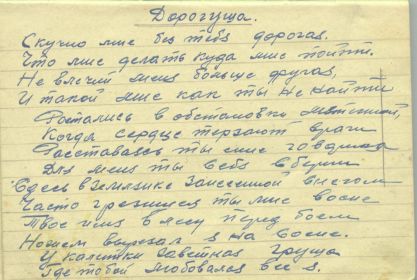 Дорогуша.
Скучно мне без тебя дорогая.
Что мне делать куда мне пойти.
Не влечий меня больше другая,
И такой мне как ты не найти
Остались в обстановки
Когда сердце терзают враги
Расставаясь ты мне говорила
Для меня ты себя сбереги
Здесь в Землянке Занесенной снегом
Часто грезишся ты мне восне
Твое имя в лесу перед боем
Ножем вырезал я на сосне.
У калитки заветная груша
Где тобой любовался все я